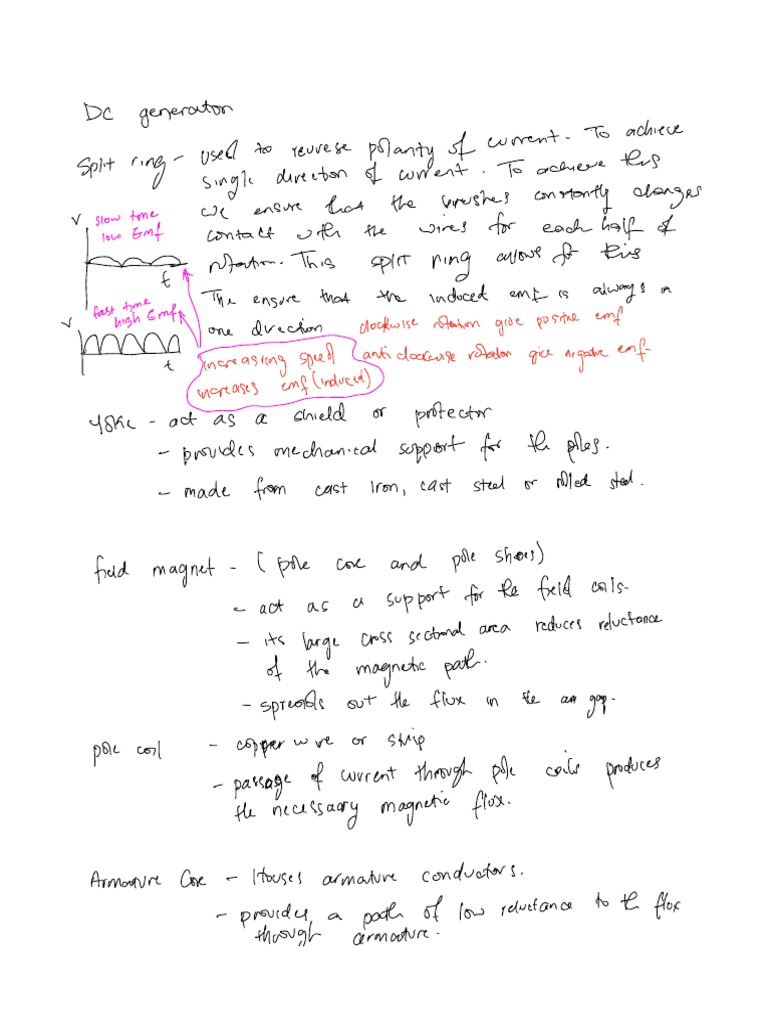 DC generator
Split ring - used to reverse polarity of current. To achieve
single direction of current. To achieve this
we ensure that the brushes constantly changes
contact with the wires for each half of
rotation. This split ring allows for this
The ensure that the induced emf is always in
one direction
clockwise rotation give positive emf
anticlockwise rotation give negative emf
V
slow time
low Emf
t
fast time
high Emf
V
t
increasing speed
increases emf (induced)
Yoke - act as a shield or protector
- provides mechanical support for the poles.
- made from cast iron, cast steel or rolled steel.
field magnet - (pole core and pole shoes)
- act as a support for the field coils.
- its large cross sectional area reduces reluctance
of the magnetic path.
- spreads out the flux in the air gap.
pole coil - copper wire or strip
- passage of current through pole coils produces
the necessary magnetic flux.
Armature Core - Houses armature conductors.
- provides a path of low reluctance to the flux
through armature.